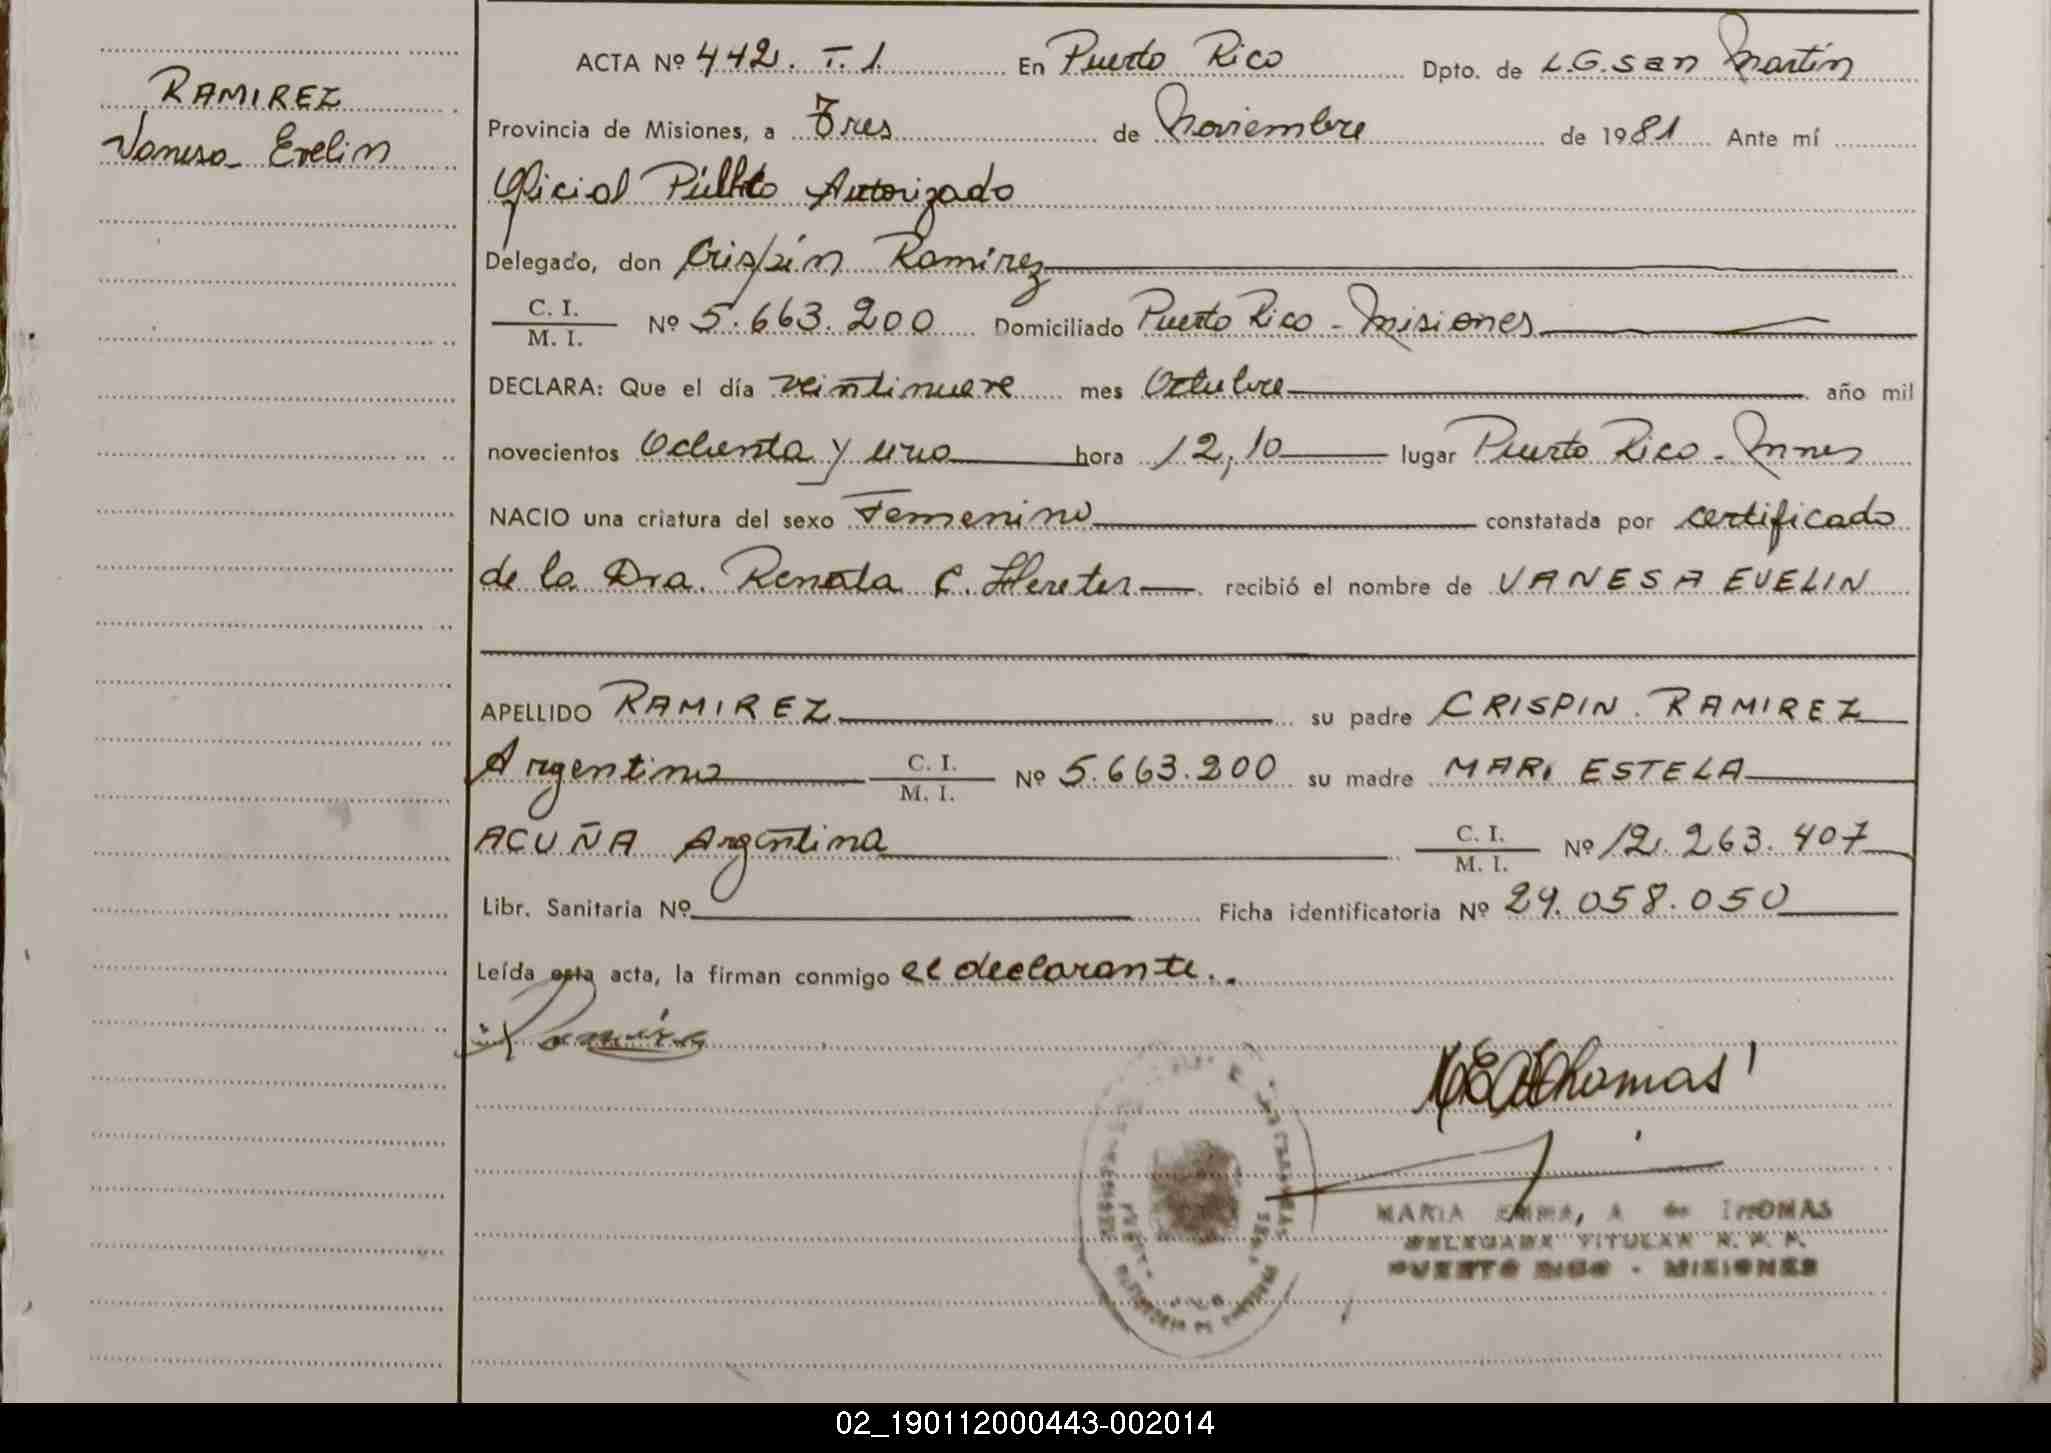 RAMIREZ
Vanesa Evelin
ACTA Nº 442. T. 1 En Puerto Rico Dpto. de L.G. San Martín
Provincia de Misiones, a Tres de Noviembre de 1981 Ante mí
Oficial Público Autorizado
Delegado, don Crispín Ramirez
C. I. / M. I. Nº 5.663.200 Domiciliado Puerto Rico - Misiones
DECLARA: Que el día veintinueve mes Octubre año mil
novecientos Ochenta y uno hora 12,10 lugar Puerto Rico - Mnes
NACIO una criatura del sexo Femenino constatada por certificado
de la Dra. Renata C. Hereter recibió el nombre de VANESA EVELIN
APELLIDO RAMIREZ su padre CRISPIN RAMIREZ
Argentino C. I. / M. I. Nº 5.663.200 su madre MARI ESTELA
ACUÑA Argentina C. I. / M. I. Nº 12.263.407
Libr. Sanitaria Nº Ficha identificatoria Nº 29.058.050
Leída esta acta, la firman conmigo el declarante.
Ramírez
Thomas
MARIA EMMA, A de THOMAS
DELEGADA TITULAR R. P. P.
PUERTO RICO - MISIONES
02_190112000443-002014